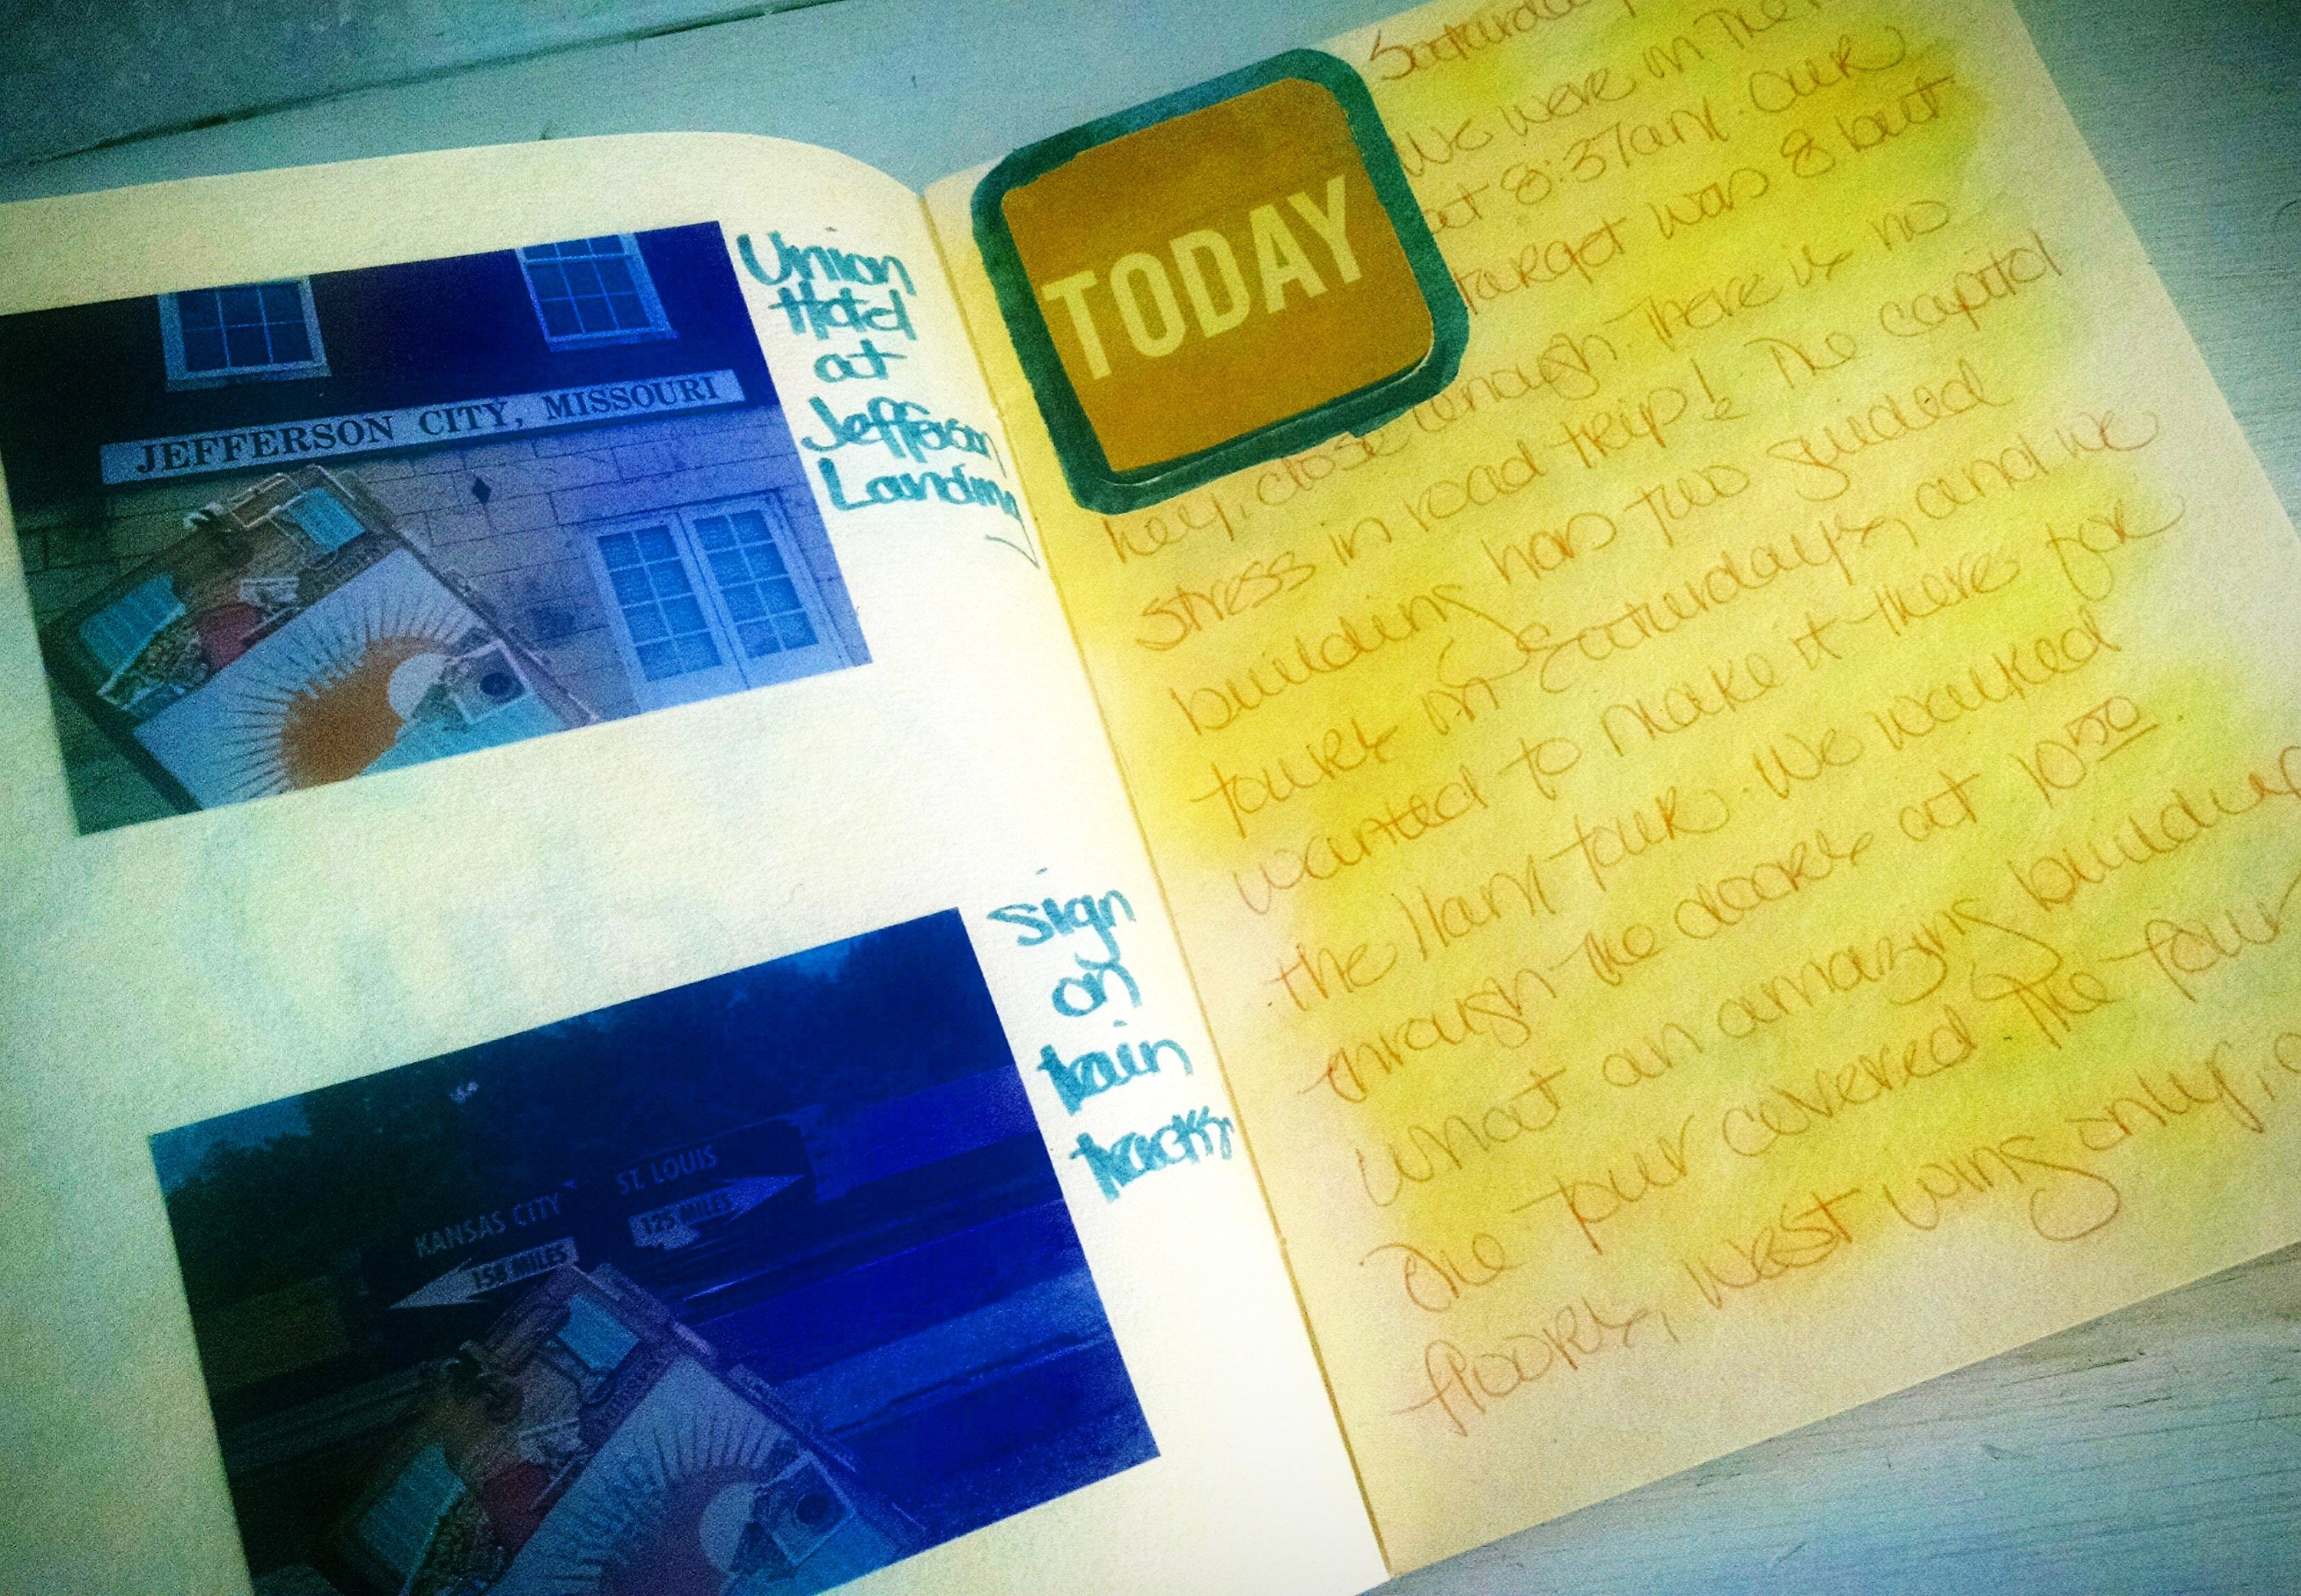 JEFFERSON CITY, MISSOURI
Union
Hotel
at
Jefferson
Landing
KANSAS CITY
158 MILES
ST. LOUIS
125 MILES
Sign
on
train
tracks
TODAY
Saturday
We were in the
at 8:37am. Our
target was 8 but
hey, close enough. There is no
stress in road trip! The capitol
building has two guided
tours on Saturdays, and we
wanted to make it there for
the 11am tour. We walked
through the doors at 10:50.
What an amazing building
The tour covered the four
floors, west wing only,